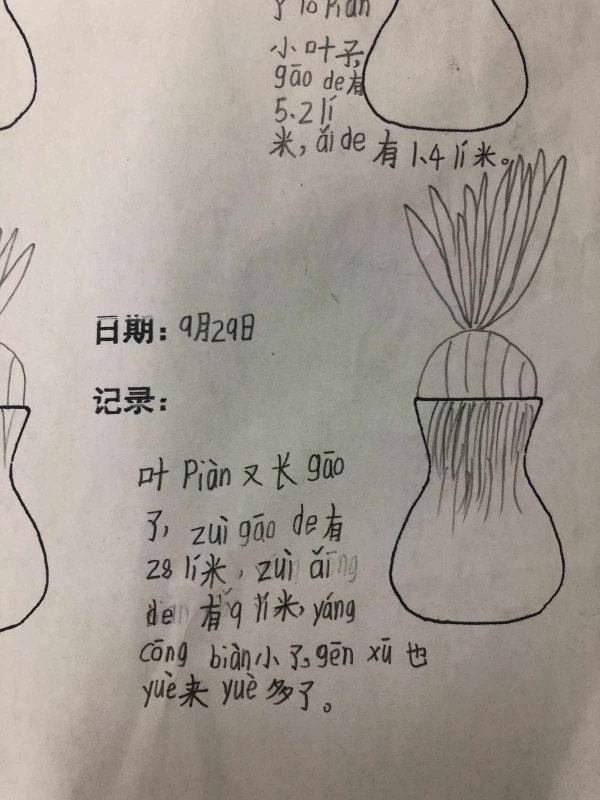 了10Piàn
小叶子,
gāo de有
5.2 lí
米,ǎi de 有 1.4 lí 米。
日期:9月29日
记录:
叶 Piàn 又长 gāo
了, zuì gāo de 有
28 lí米, zuì ǎi
de 有9 lí米, yáng
cōng biàn小了。gēn xū 也
yuè来 yuè 多了。